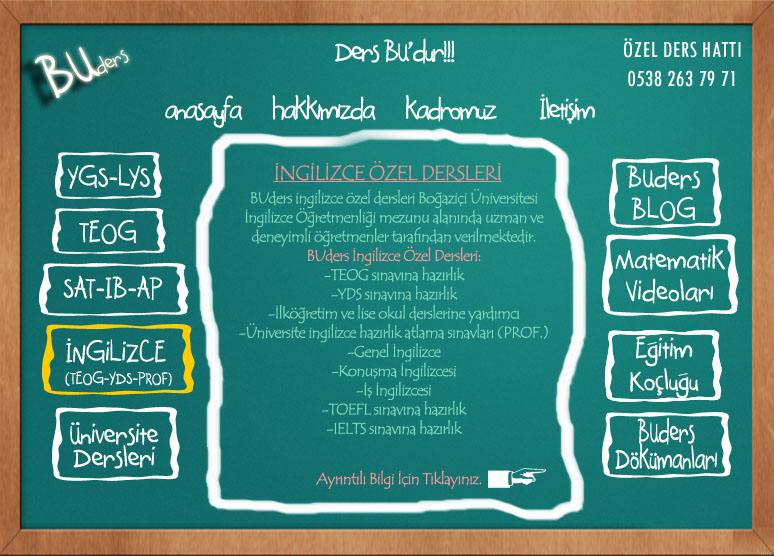 BUders
Ders BU'dur!!!
ÖZEL DERS HATTI
0538 263 79 71
anasayfa
hakkımızda
Kadromuz
İletişim
YGS-LYS
TEOG
SAT-IB-AP
İNGİLİZCE
(TEOG-YDS-PROF)
Üniversite
Dersleri
İNGİLİZCE ÖZEL DERSLERİ
BUders ingilizce özel dersleri Boğaziçi Üniversitesi
İngilizce Öğretmenliği mezunu alanında uzman ve
deneyimli öğretmenler tarafından verilmektedir.
BUders İngilizce Özel Dersleri:
-TEOG sınavına hazırlık
-YDS sınavına hazırlık
-İlköğretim ve lise okul derslerine yardımcı
-Üniversite ingilizce hazırlık atlama sınavları (PROF.)
-Genel İngilizce
-Konuşma İngilizcesi
-İş İngilizcesi
-TOEFL sınavına hazırlık
-IELTS sınavına hazırlık
Ayrıntılı Bilgi İçin Tıklayınız.
Buders
BLOG
Matematik
Videoları
Eğitim
Koçluğu
Buders
DöKümanları